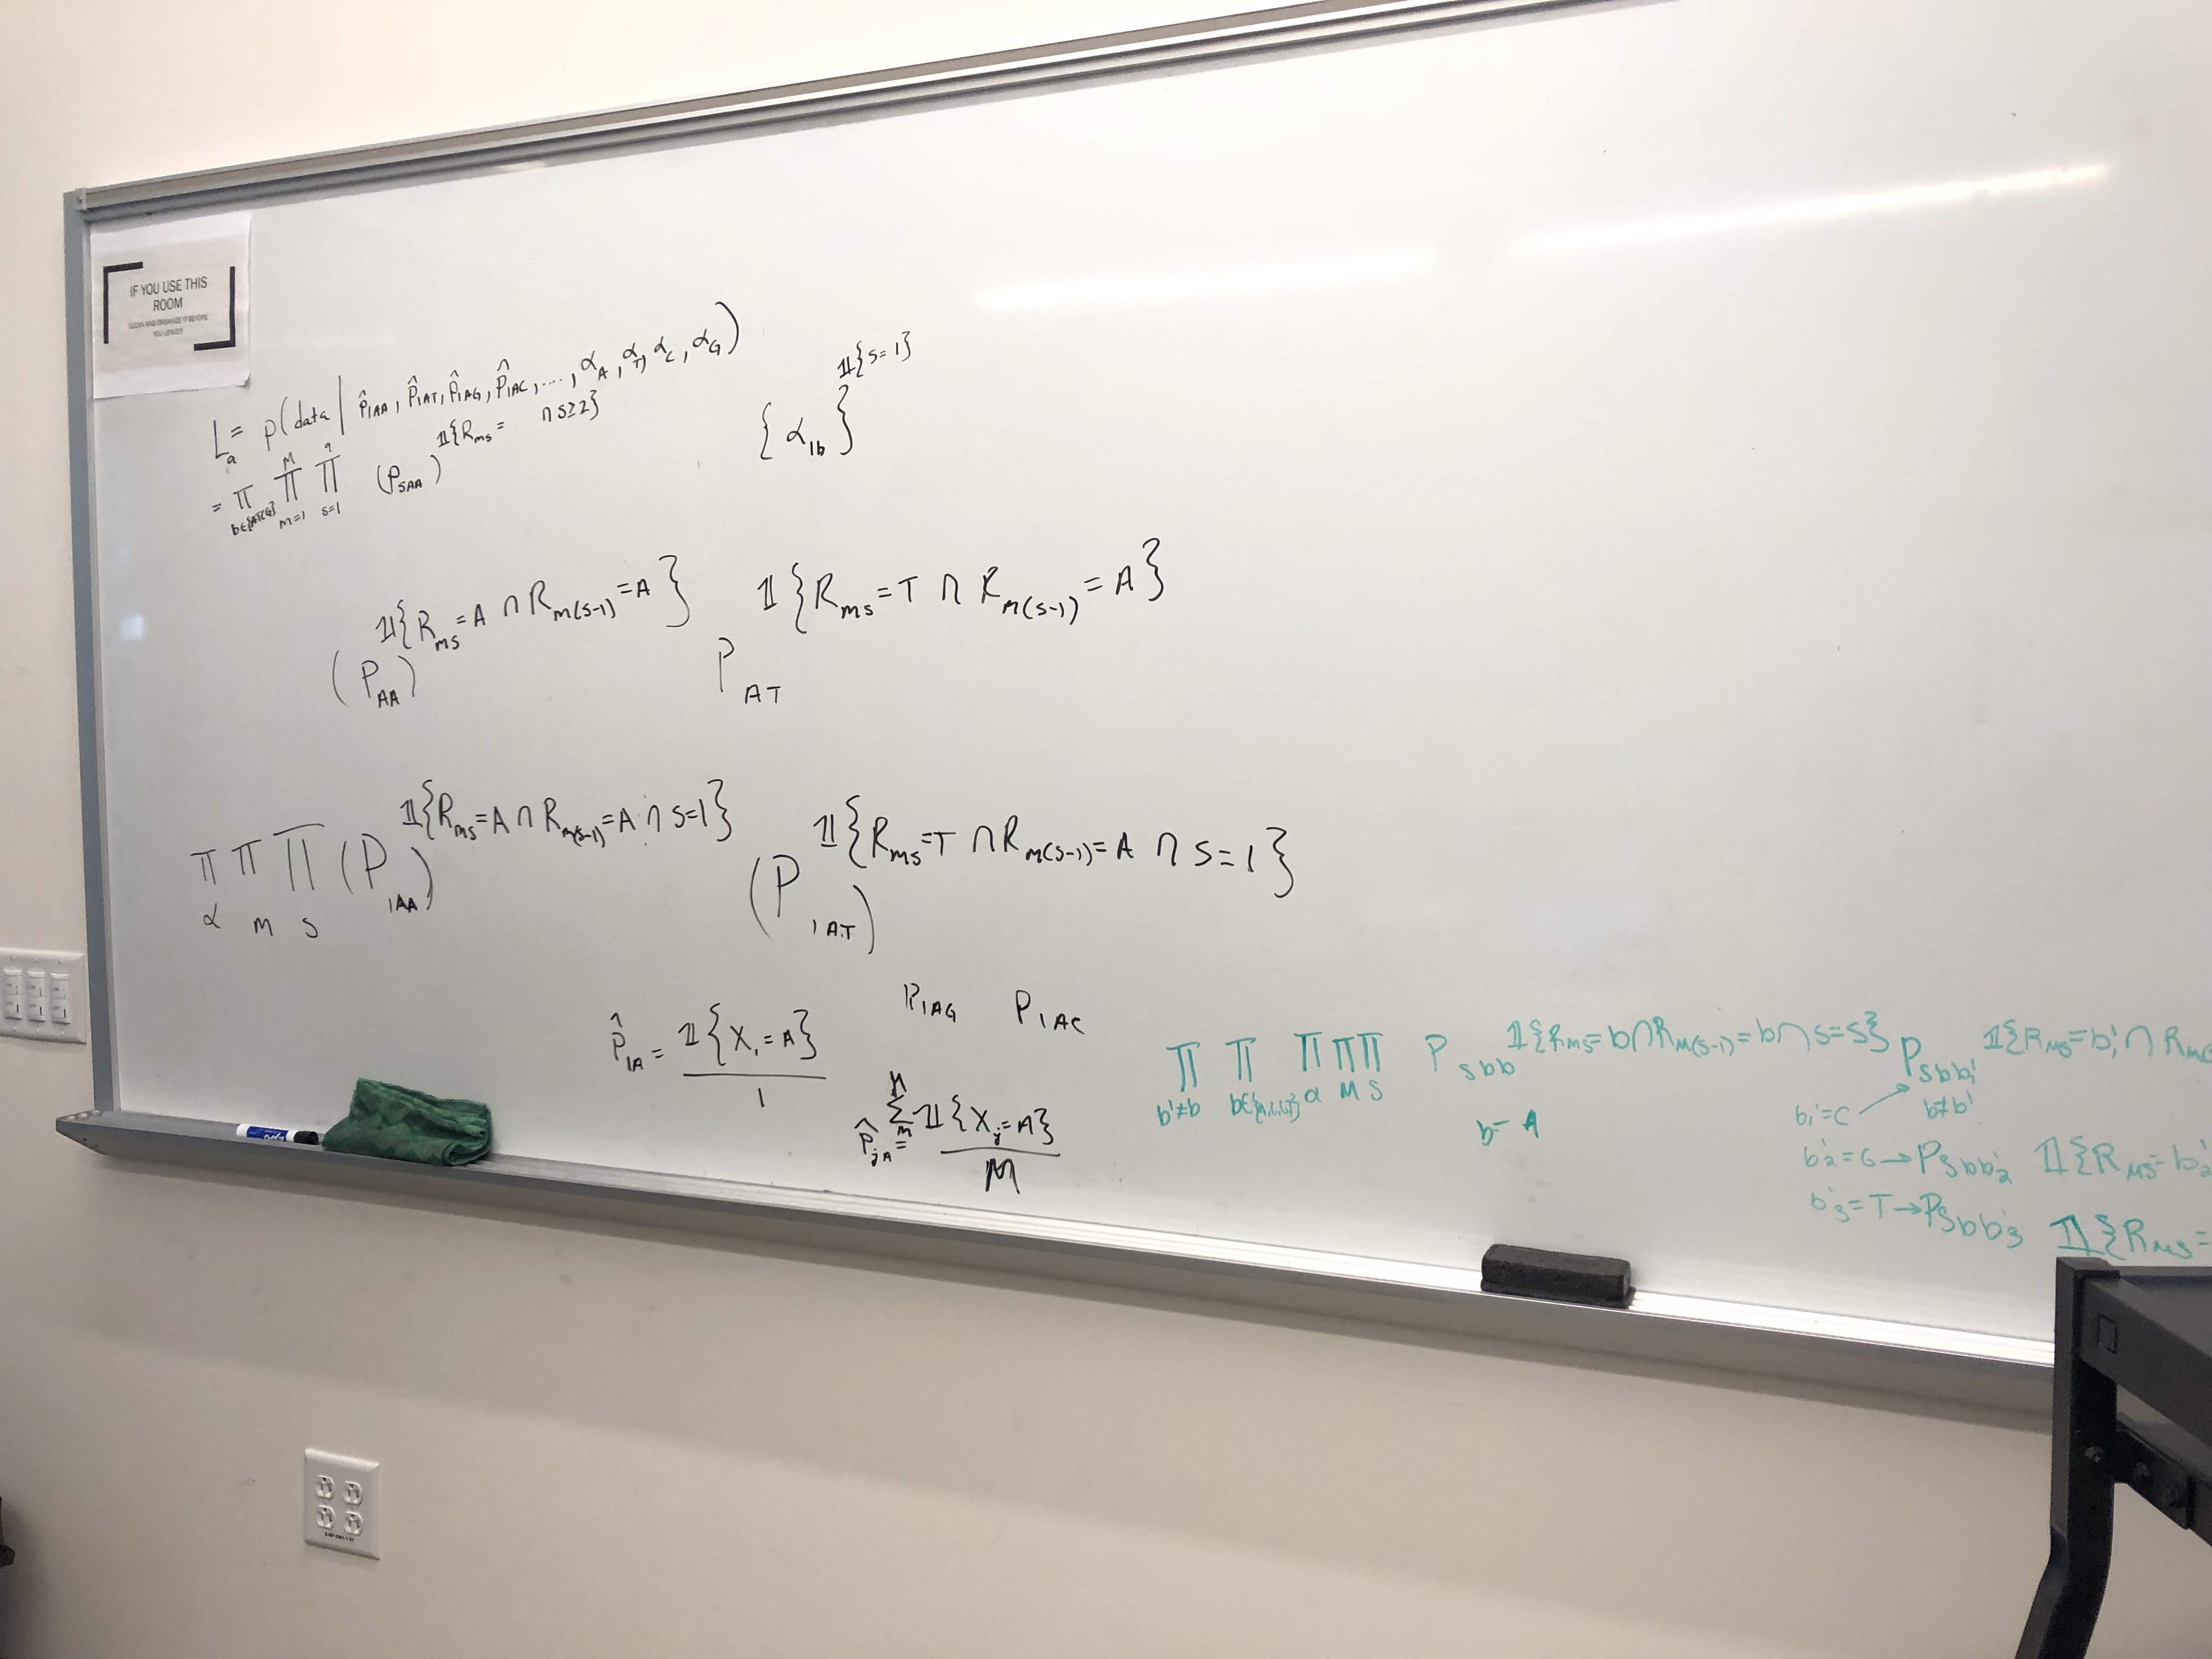 IF YOU USE THIS
ROOM
CLEAN AND ORGANIZE IT BEFORE
YOU LEAVE!!!
L_a = p(data | p̂_1AA, p̂_1AT, p̂_1AG, p̂_1AC, ...., α_A, α_T, α_C, α_G)
= Π_{b∈{ATCG}} Π_{m=1}^{M} Π_{s=1}^{9} (P_SAA)^{𝟙{R_ms = ∩ s≥2}} {α_1b}^{𝟙{s=1}}
(P_AA)^{𝟙{R_ms = A ∩ R_m(s-1) = A}} P_AT^{𝟙{R_ms = T ∩ R_m(s-1) = A}}
Π_α Π_m Π_s (P_1AA)^{𝟙{R_ms = A ∩ R_m(s-1) = A ∩ s=1}} (P_1AT)^{𝟙{R_ms = T ∩ R_m(s-1) = A ∩ s=1}}
P_1AG P_1AC
p̂_1A = 𝟙{X_1 = A} / 1
p̂_jA = Σ_m^M 𝟙{X_j = A} / M
Π_{b'≠b} Π_{b∈{A,C,G,T}} Π_α Π_M Π_S P_sbb^{𝟙{R_ms = b ∩ R_m(s-1) = b ∩ s=s}} P_sbb'_1^{𝟙{R_ms = b'_1 ∩ R_m(}}
b=A
b'_1=C → b≠b'
b'_2=G → P_sbb'_2 𝟙{R_ms = b'_2
b'_3=T → P_sbb'_3 𝟙{R_ms =